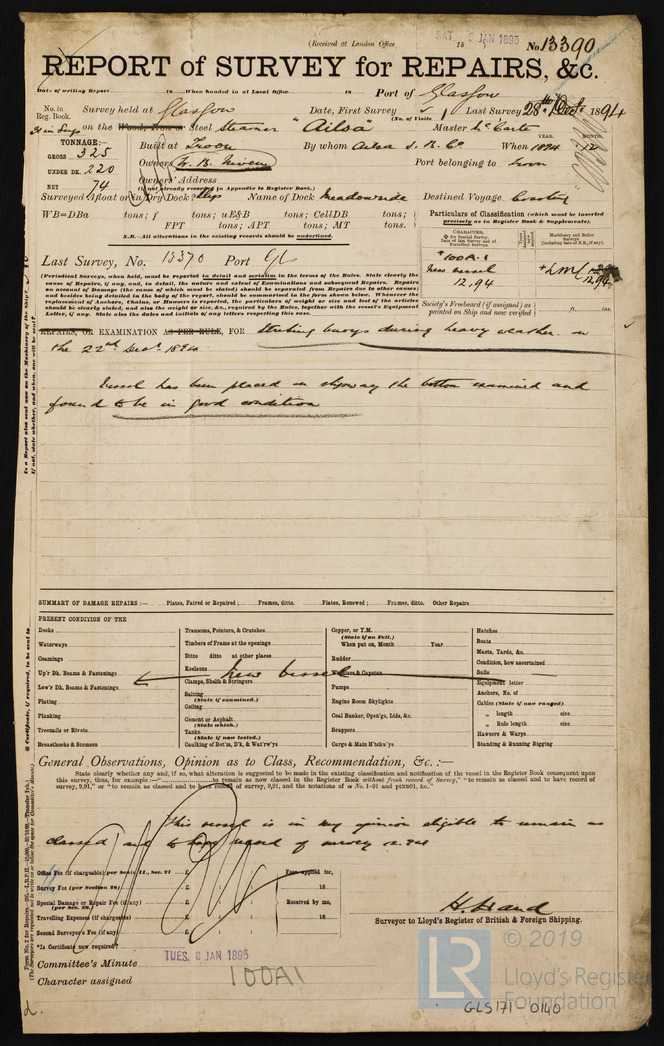 (Received at London Office
SAT. 5 JAN 1895
18
No. 13390
REPORT of SURVEY for REPAIRS, &c.
Date of writing Report. 18 When handed in at Local Office. 18 Port of Glasgow
No. in Reg. Book.
Survey held at Glasgow Date, First Survey Last Survey 28th Dec 1894
(No. of Visits )
on the Wood, Iron or Steel Steamer "Ailsa" Master
TONNAGE:—
GROSS 325
UNDER DK. 220
NET 74
Built at Troon By whom Ailsa S. B. Co When 1894 12
YEAR. MONTH.
Owners Port belonging to
Owners' Address
(if not already recorded in Appendix to Register Book.)
Surveyed Afloat or in Dry Dock? Slip Name of Dock Meadowside Destined Voyage Coasting
WB=DBa tons; f tons; uE&B tons; CellDB tons;
FPT tons; APT tons; MT tons.
N.B.—All alterations in the existing records should be underlined.
Particulars of Classification (which must be inserted
precisely as in Register Book & Supplements).
CHARACTER.
Last Survey, No. 13370 Port Gls
+100A.1
New vessel
12,94
+LMC
12,94
(Periodical Surveys, when held, must be reported in detail and seriatim in the terms of the Rules. State clearly the
cause of Repairs, if any, and, in detail, the nature and extent of Examinations and subsequent Repairs. Repairs
on account of Damage (the cause of which must be stated) should be separated from Repairs due to other causes;
and besides being detailed in the body of the report, should be summarised in the form shewn below. Whenever the
replacement of Anchors, Chains, or Hawsers is reported, the particulars of weight or size and test of the articles
should be clearly stated, and also the weight or size, &c., required by the Rules, together with the vessel's Equipment
Letter, if any. State also the dates and initials of any letters respecting this case.
Society's Freeboard (if assigned) as
painted on Ship and now verified ft. ins.
REPAIRS, OR EXAMINATION AS PER RULE, FOR Striking buoys during heavy weather on
the 22nd Decr 1894
Vessel has been placed on slipway the bottom examined and
found to be in good condition
SUMMARY OF DAMAGE REPAIRS:— Plates, Faired or Repaired; Frames, ditto. Plates, Renewed; Frames, ditto. Other Repairs
PRESENT CONDITION OF THE
Decks
Waterways
Coamings
Up'r Dk. Beams & Fastenings
Low'r Dk. Beams & Fastenings
Plating
Planking
Treenails or Rivets
Breasthooks & Stemson
Transoms, Pointers, & Crutches
Timbers of Frame at the openings
Ditto ditto at other places
Keelsons
Clamps, Shelfs & Stringers
Salting
(State if examined.)
Ceiling
Cement or Asphalt
(State which.)
Tanks
(State if now tested.)
Caulking of Bot'm, D'k, & Wat'rw'ys
New vessel
Copper, or Y.M.
(State if on Felt.)
When put on, Month Year
Rudder
Windlass & Capstan
Pumps
Engine Room Skylights
Coal Bunker, Open'gs, Lids, &c.
Scuppers
Cargo & Main H'tchw'ys
Hatches
Boats
Masts, Yards, &c.
Condition, how ascertained
Sails
Equipment letter
Anchors, No. of
Cables (State if now ranged)
" length size
" Rule length size
Hawsers & Warps
Standing & Running Rigging
General Observations, Opinion as to Class, Recommendation, &c.:—
State clearly whether any and, if so, what alteration is suggested to be made in the existing classification and notification of the vessel in the Register Book consequent upon
this survey, thus, for example:—" to remain as now classed in the Register Book without fresh record of Survey," "to remain as classed and to have record of
survey, 9,91," or "to remain as classed and to have record of survey, 9,91, and the notations of
This vessel is in my opinion eligible to remain as
classed and to have record of survey 12.94
Office Fee (if chargeable) per Section 11., Sec. 27 £ Fees applied for,
Survey Fee (per Section 28). £ 18
Special Damage or Repair Fee (if any) £ Received by me,
(per Sec. 28).
Travelling Expenses (if chargeable) £ 18
Second Surveyor's Fee (if any) £
*Is Certificate now required?
H. Brand
Surveyor to Lloyd's Register of British & Foreign Shipping.
Committee's Minute TUES. 8 JAN 1895
Character assigned 100A1
LR © 2019
Lloyd's Register
Foundation
GLS171-0140